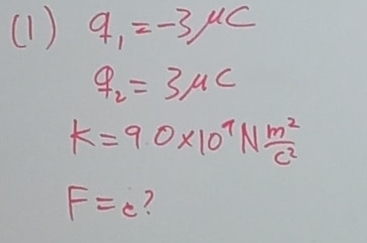 (1) q₁ = -3 μC
q₂ = 3 μC
K = 9.0×10⁹ N m²/c²
F = ¿?